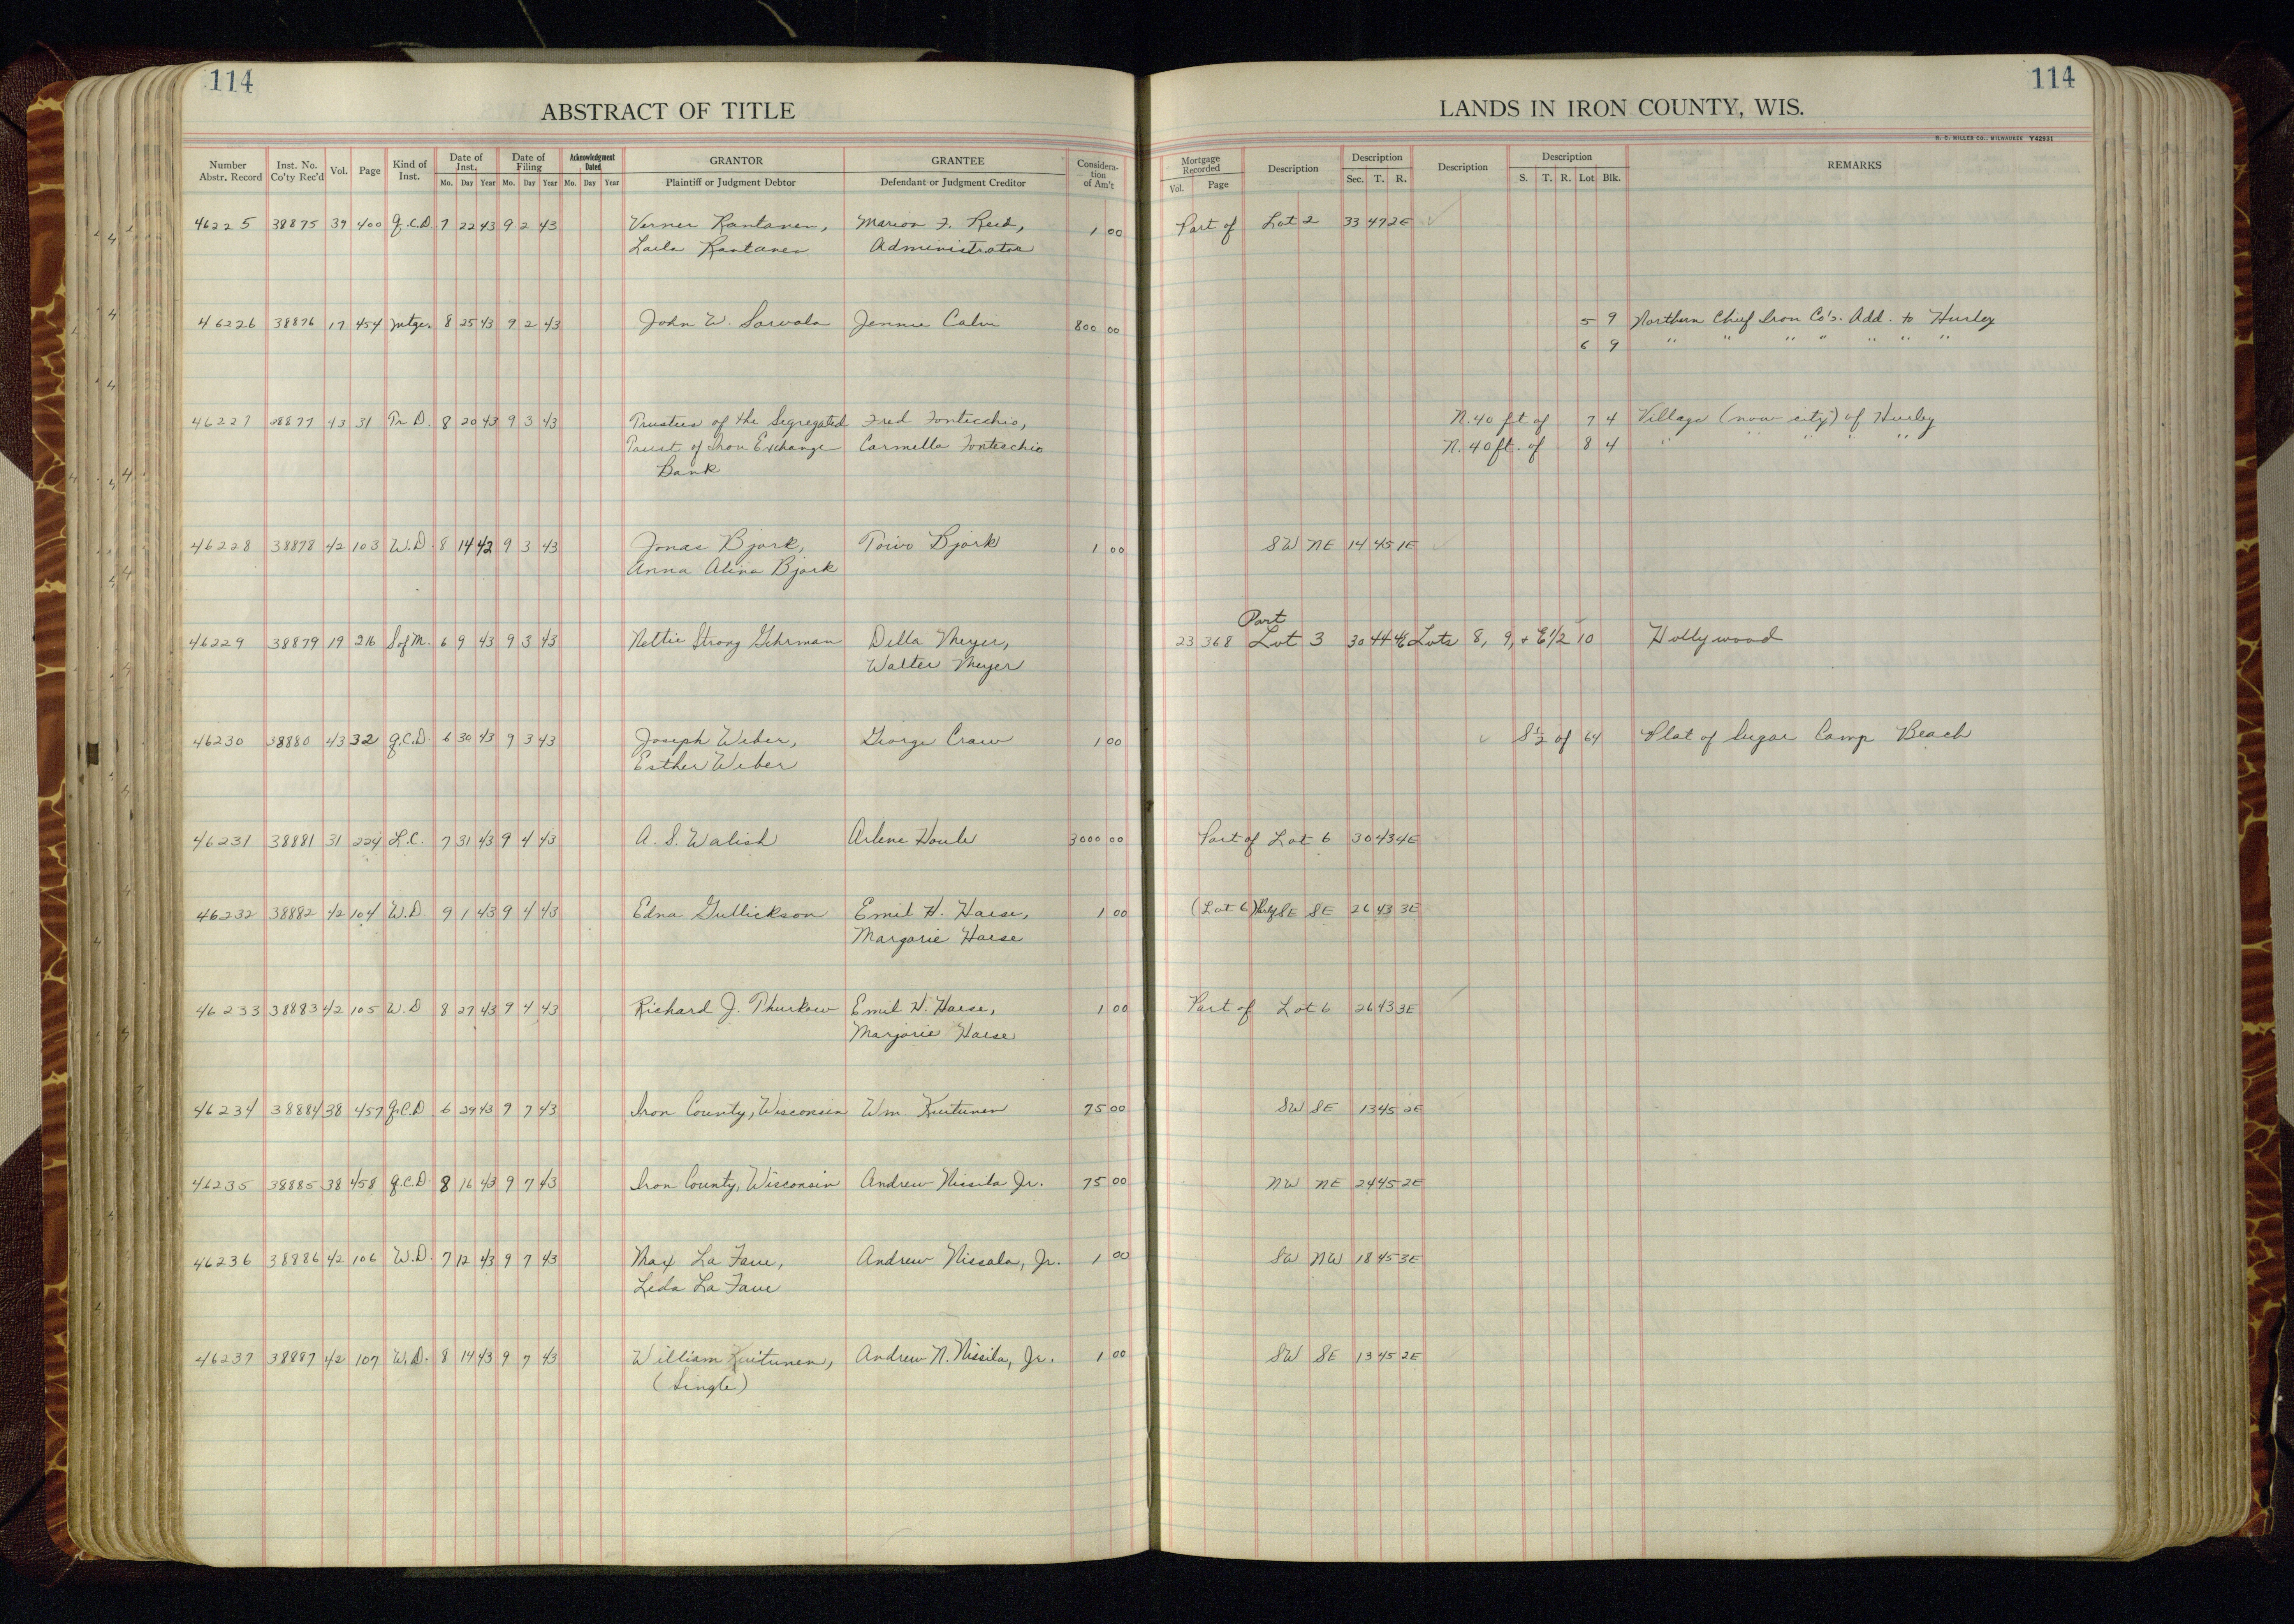 114
ABSTRACT OF TITLE
Number Abstr. Record Inst. No. Co'ty Rec'd Vol. Page Kind of Inst. Date of Inst. Mo. Day Year Date of Filing Mo. Day Year Acknowledgment Dated Mo. Day Year GRANTOR Plaintiff or Judgment Debtor GRANTEE Defendant or Judgment Creditor Considera-tion of Am't
114
LANDS IN IRON COUNTY, WIS.
H. C. MILLER CO., MILWAUKEE Y42931
Mortgage Recorded Vol. Page Description Description Sec. T. R. Description Description S. T. R. Lot Blk. REMARKS
46225 38875 39 400 Q.C.D. 7 22 43 9 2 43 Verner Rantanen, Marion F. Reed, 1 00 Part of Lot 2 33 47 2E
Laila Rantanen Administrator
46226 38876 17 454 Mtge. 8 25 43 9 2 43 John W. Sarvala Jennie Calvi 800 00 5 9 Northern Chief Iron Co's. Add. to Hurley
6 9 " " " " " " "
46227 38877 43 31 Tr. D. 8 20 43 9 3 43 Trustees of the Segregated Fred Fontecchio, N. 40 ft of 7 4 Village (now city) of Hurley
Trust of Iron Exchange Carmella Fontecchio N. 40 ft. of 8 4 " " " " "
Bank
46228 38878 42 103 W.D. 8 14 42 9 3 43 Jonas Bjork, Toivo Bjork 1 00 SW NE 14 45 1E
Anna Alina Bjork
Part
46229 38879 19 216 S of M. 6 9 43 9 3 43 Nettie Strong Gehrman Della Meyer, 23 368 Lot 3 30 44 Lots 8, 9, + E 1/2 10 Hollywood
Walter Meyer
46230 38880 43 32 Q.C.D. 6 30 43 9 3 43 Joseph Weber, George Craw 1 00 S 1/2 of 64 Plat of Sugar Camp Beach
Esther Weber
46231 38881 31 224 L.C. 7 31 43 9 4 43 A. S. Walish Arlene Houle 3000 00 Part of Lot 6 30 43 4E
46232 38882 42 104 W.D. 9 1 43 9 4 43 Edna Gullickson Emil H. Haese, 1 00 (Lot 6) SE SE 26 43 3E
Marjorie Haese
46233 38883 42 105 W.D. 8 27 43 9 4 43 Richard J. Thurkow Emil H. Haese, 1 00 Part of Lot 6 26 43 3E
Marjorie Haese
46234 38884 38 457 Q.C.D 6 29 43 9 7 43 Iron County, Wisconsin Wm Kuitunen 75 00 SW SE 13 45 2E
46235 38885 38 458 Q.C.D. 8 16 43 9 7 43 Iron County, Wisconsin Andrew Nissila Jr. 75 00 NW NE 24 45 2E
46236 38886 42 106 W.D. 7 12 43 9 7 43 Max La Fave, Andrew Nissala, Jr. 1 00 SW NW 18 45 3E
Leda La Fave
46237 38887 42 107 W.D. 8 14 43 9 7 43 William Kuitunen, Andrew N. Nissila, Jr. 1 00 SW SE 13 45 2E
(Single)